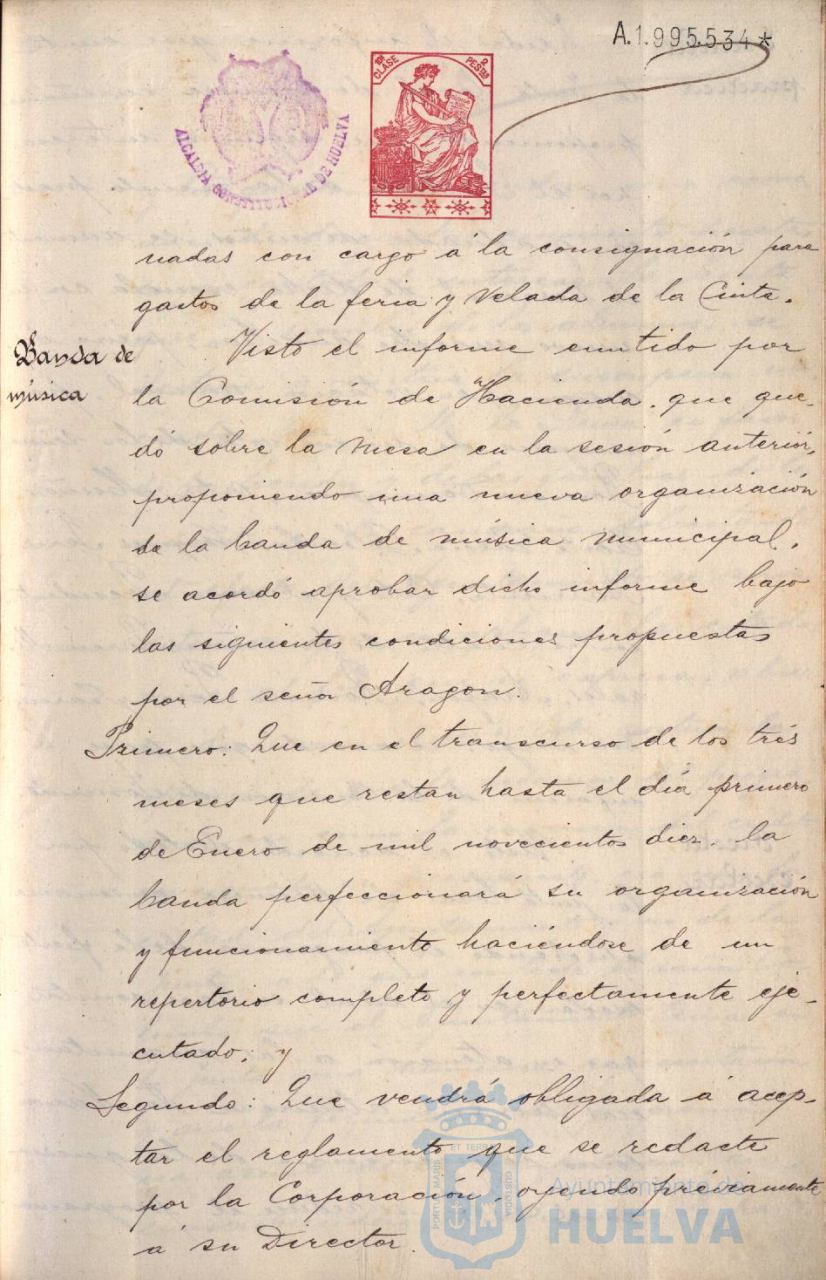 A.1.995.534*
1ª CLASE
2 PESTAS
ALCALDIA CONSTITUCIONAL DE HUELVA
nadas con cargo á la consignación para
gastos de la feria y velada de la Cinta.
Banda de
música
Visto el informe emitido por
la Comisión de Hacienda, que que-
dó sobre la mesa en la sesión anterior,
proponiendo una nueva organización
de la banda de música municipal,
se acordó aprobar dicho informe bajo
las siguientes condiciones propuestas
por el señor Aragon.
Primero: Que en el transcurso de los tres
meses que restan hasta el día primero
de Enero de mil novecientos diez, la
banda perfeccionará su organización
y funcionamiento haciéndose de un
repertorio completo y perfectamente eje-
cutado; y
Segundo: Que vendrá obligada á acep-
tar el reglamento que se redacte
por la Corporación, oyendo préviamente
á su Director.
Ayuntamiento de
HUELVA